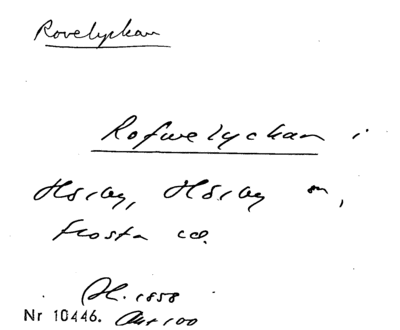 Rovelyckan
Rofwelyckan i
Hörby, Hörby sn,
Frosta hd.
1858
Nr 10446. Akt 100